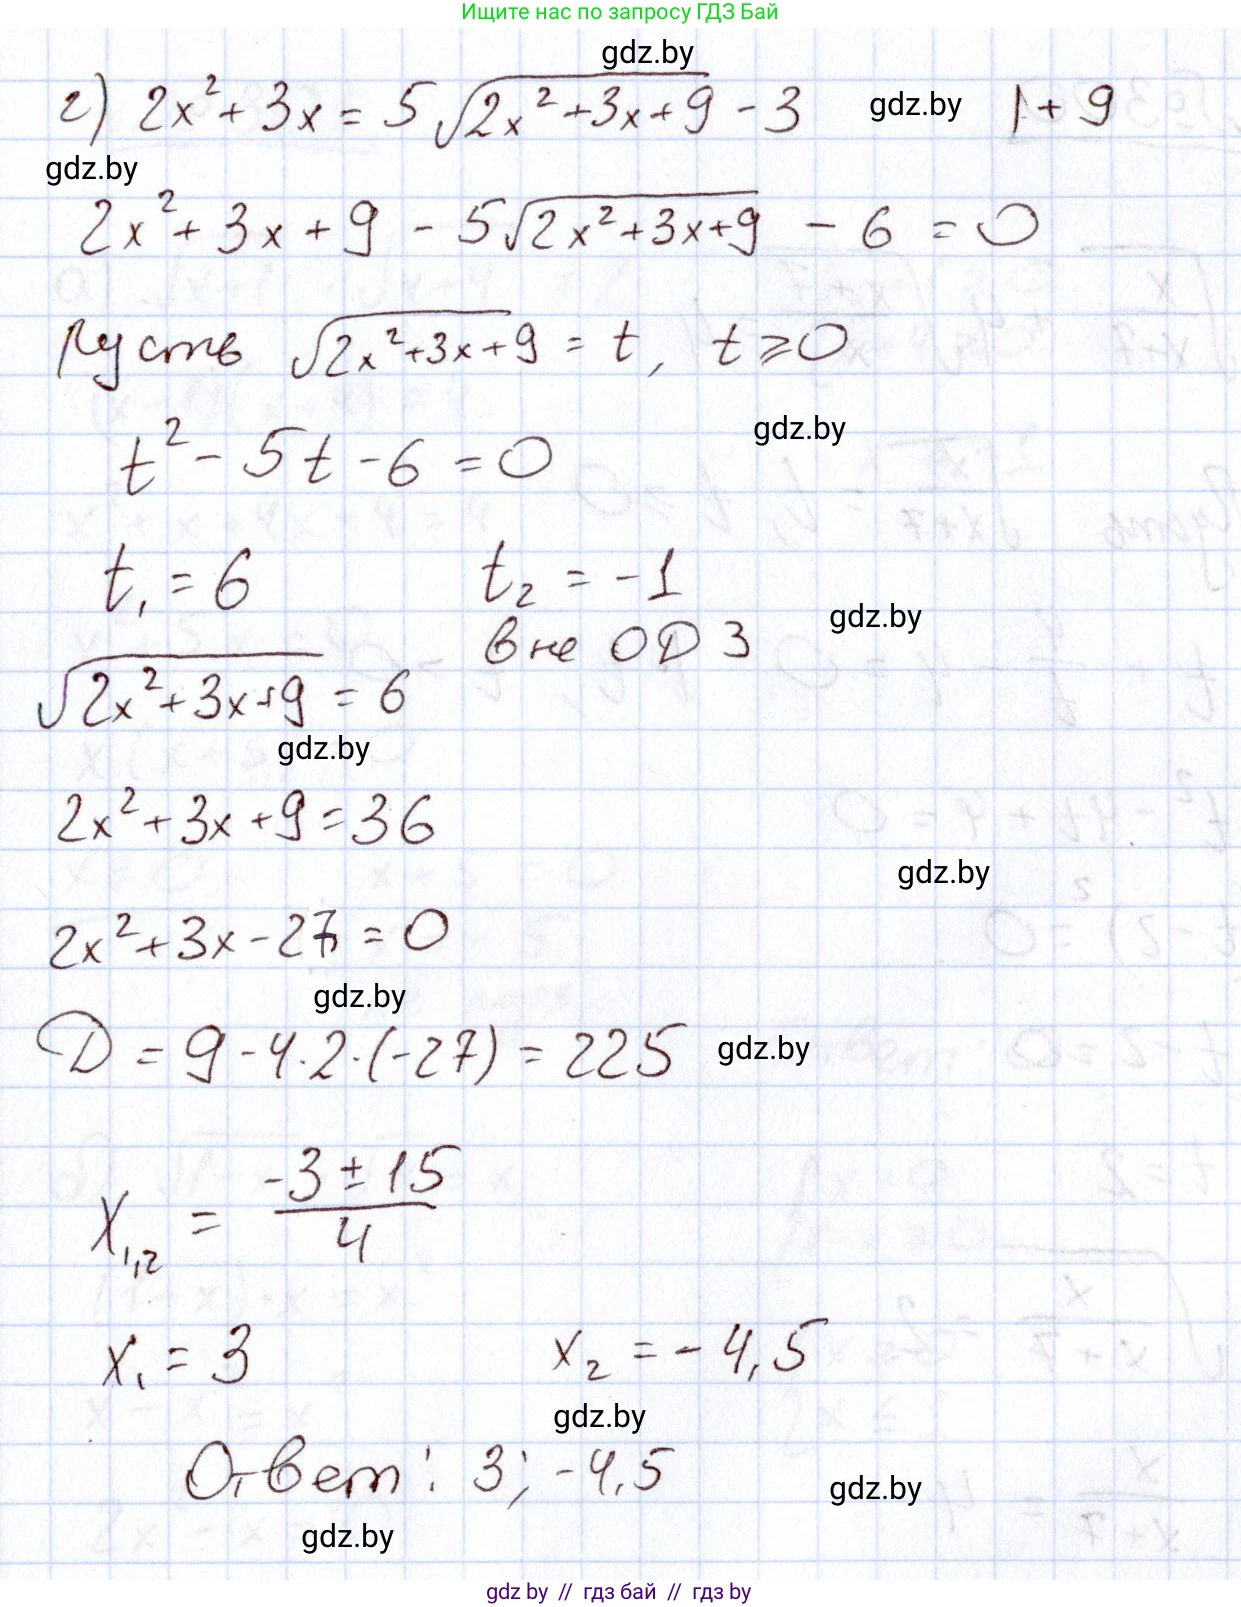 Ищите нас по запросу ГДЗ Бай
gdz.by
г) 2x² + 3x = 5√(2x² + 3x + 9) - 3 gdz.by | + 9
gdz.by
2x² + 3x + 9 - 5√(2x² + 3x + 9) - 6 = 0
Пусть √(2x² + 3x + 9) = t, t ⩾ 0
gdz.by
t² - 5t - 6 = 0
t₁ = 6 t₂ = -1
gdz.by
вне ОДЗ
√(2x² + 3x + 9) = 6
gdz.by
2x² + 3x + 9 = 36
gdz.by
2x² + 3x - 27 = 0
gdz.by
D = 9 - 4·2·(-27) = 225 gdz.by
x₁,₂ = (-3 ± 15)/4
x₁ = 3 x₂ = -4,5
gdz.by
Ответ: 3; -4,5
gdz.by
gdz.by
gdz by // гдз бай // гдз by